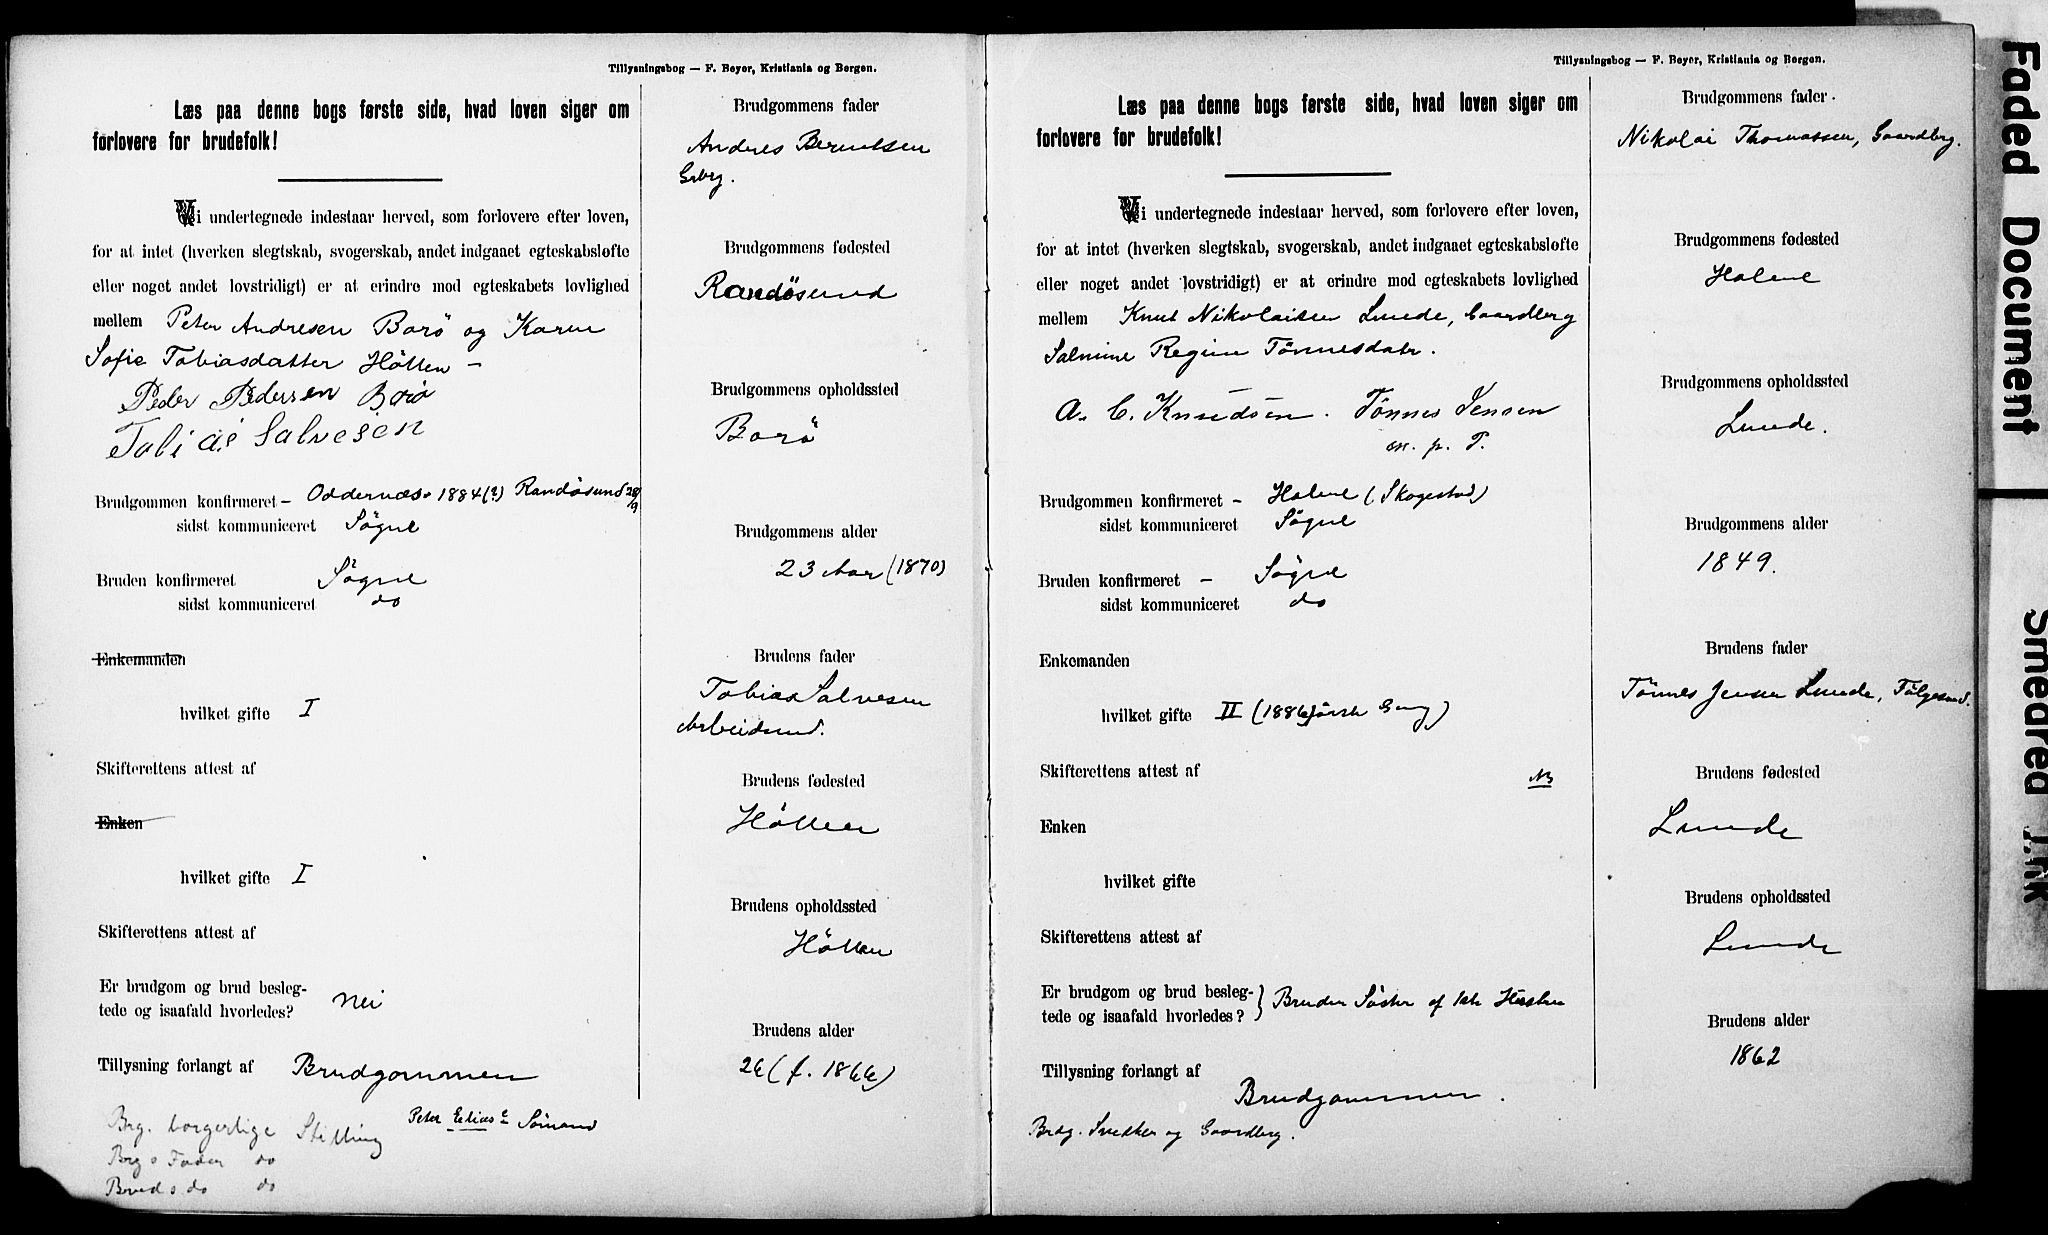 Tillysningsbog — F. Beyer, Kristiania og Bergen.
Læs paa denne bogs første side, hvad loven siger om
forlovere for brudefolk!
Vi undertegnede indestaar herved, som forlovere efter loven,
for at intet (hverken slegtskab, svogerskab, andet indgaaet egteskabsløfte
eller noget andet lovstridigt) er at erindre mod egteskabets lovlighed
mellem Peter Andresen Borö og Karen
Sofie Tobiasdatter Hölten –
Peder Pedersen Borø
Tobias Salvesen
Brudgommen konfirmeret – Oddernæs 1884(?) Randösund 28/9
sidst kommuniceret Sögne
Bruden konfirmeret Sögne
sidst kommuniceret do
Enkemanden
hvilket gifte I
Skifterettens attest af
Enken
hvilket gifte I
Skifterettens attest af
Er brudgom og brud besleg-
tede og isaafald hvorledes? Nei
Tillysning forlangt af Brudgommen
Peter Elias Sömand
Brg. borgerlige Stilling
Brgs Fader do
Bruds do do
Brudgommens fader
Anders Berntsen
Gbrg.
Brudgommens fødested
Randösund
Brudgommens opholdssted
Borö
Brudgommens alder
23 Aar (1870)
Brudens fader
Tobias Salvesen
Arbeidsmd.
Brudens fødested
Hölten
Brudens opholdssted
Hölten
Brudens alder
26 (f. 1866)
Tillysningsbog — F. Beyer, Kristiania og Bergen.
Læs paa denne bogs første side, hvad loven siger om
forlovere for brudefolk!
Vi undertegnede indestaar herved, som forlovere efter loven,
for at intet (hverken slegtskab, svogerskab, andet indgaaet egteskabsløfte
eller noget andet lovstridigt) er at erindre mod egteskabets lovlighed
mellem Knut Nikolaisen Lunde, Gaardberg
Salmine Regine Tönnesdatr.
A. C. Knudsen. Tönnes Jensen
m. p. P.
Brudgommen konfirmeret – Halme (Skogestad)
sidst kommuniceret Sögne
Bruden konfirmeret – Sögne
sidst kommuniceret do
Enkemanden
hvilket gifte II (1886 förste Gang)
Skifterettens attest af NB
Enken
hvilket gifte
Skifterettens attest af
Er brudgom og brud besleg-
tede og isaafald hvorledes? } Bruden Söster af 1ste Hustru
Tillysning forlangt af
Brudgommen.
Brdg. Snedker og Gaardbrg.
Brudgommens fader.
Nikolai Thomassen, Gaardbrg.
Brudgommens fødested
Halme
Brudgommens opholdssted
Lunde.
Brudgommens alder
1849.
Brudens fader
Tönnes Jensen Lunde,
Brudens fødested
Lunde
Brudens opholdssted
Lunde
Brudens alder
1862
Faded Document
Smeared Ink